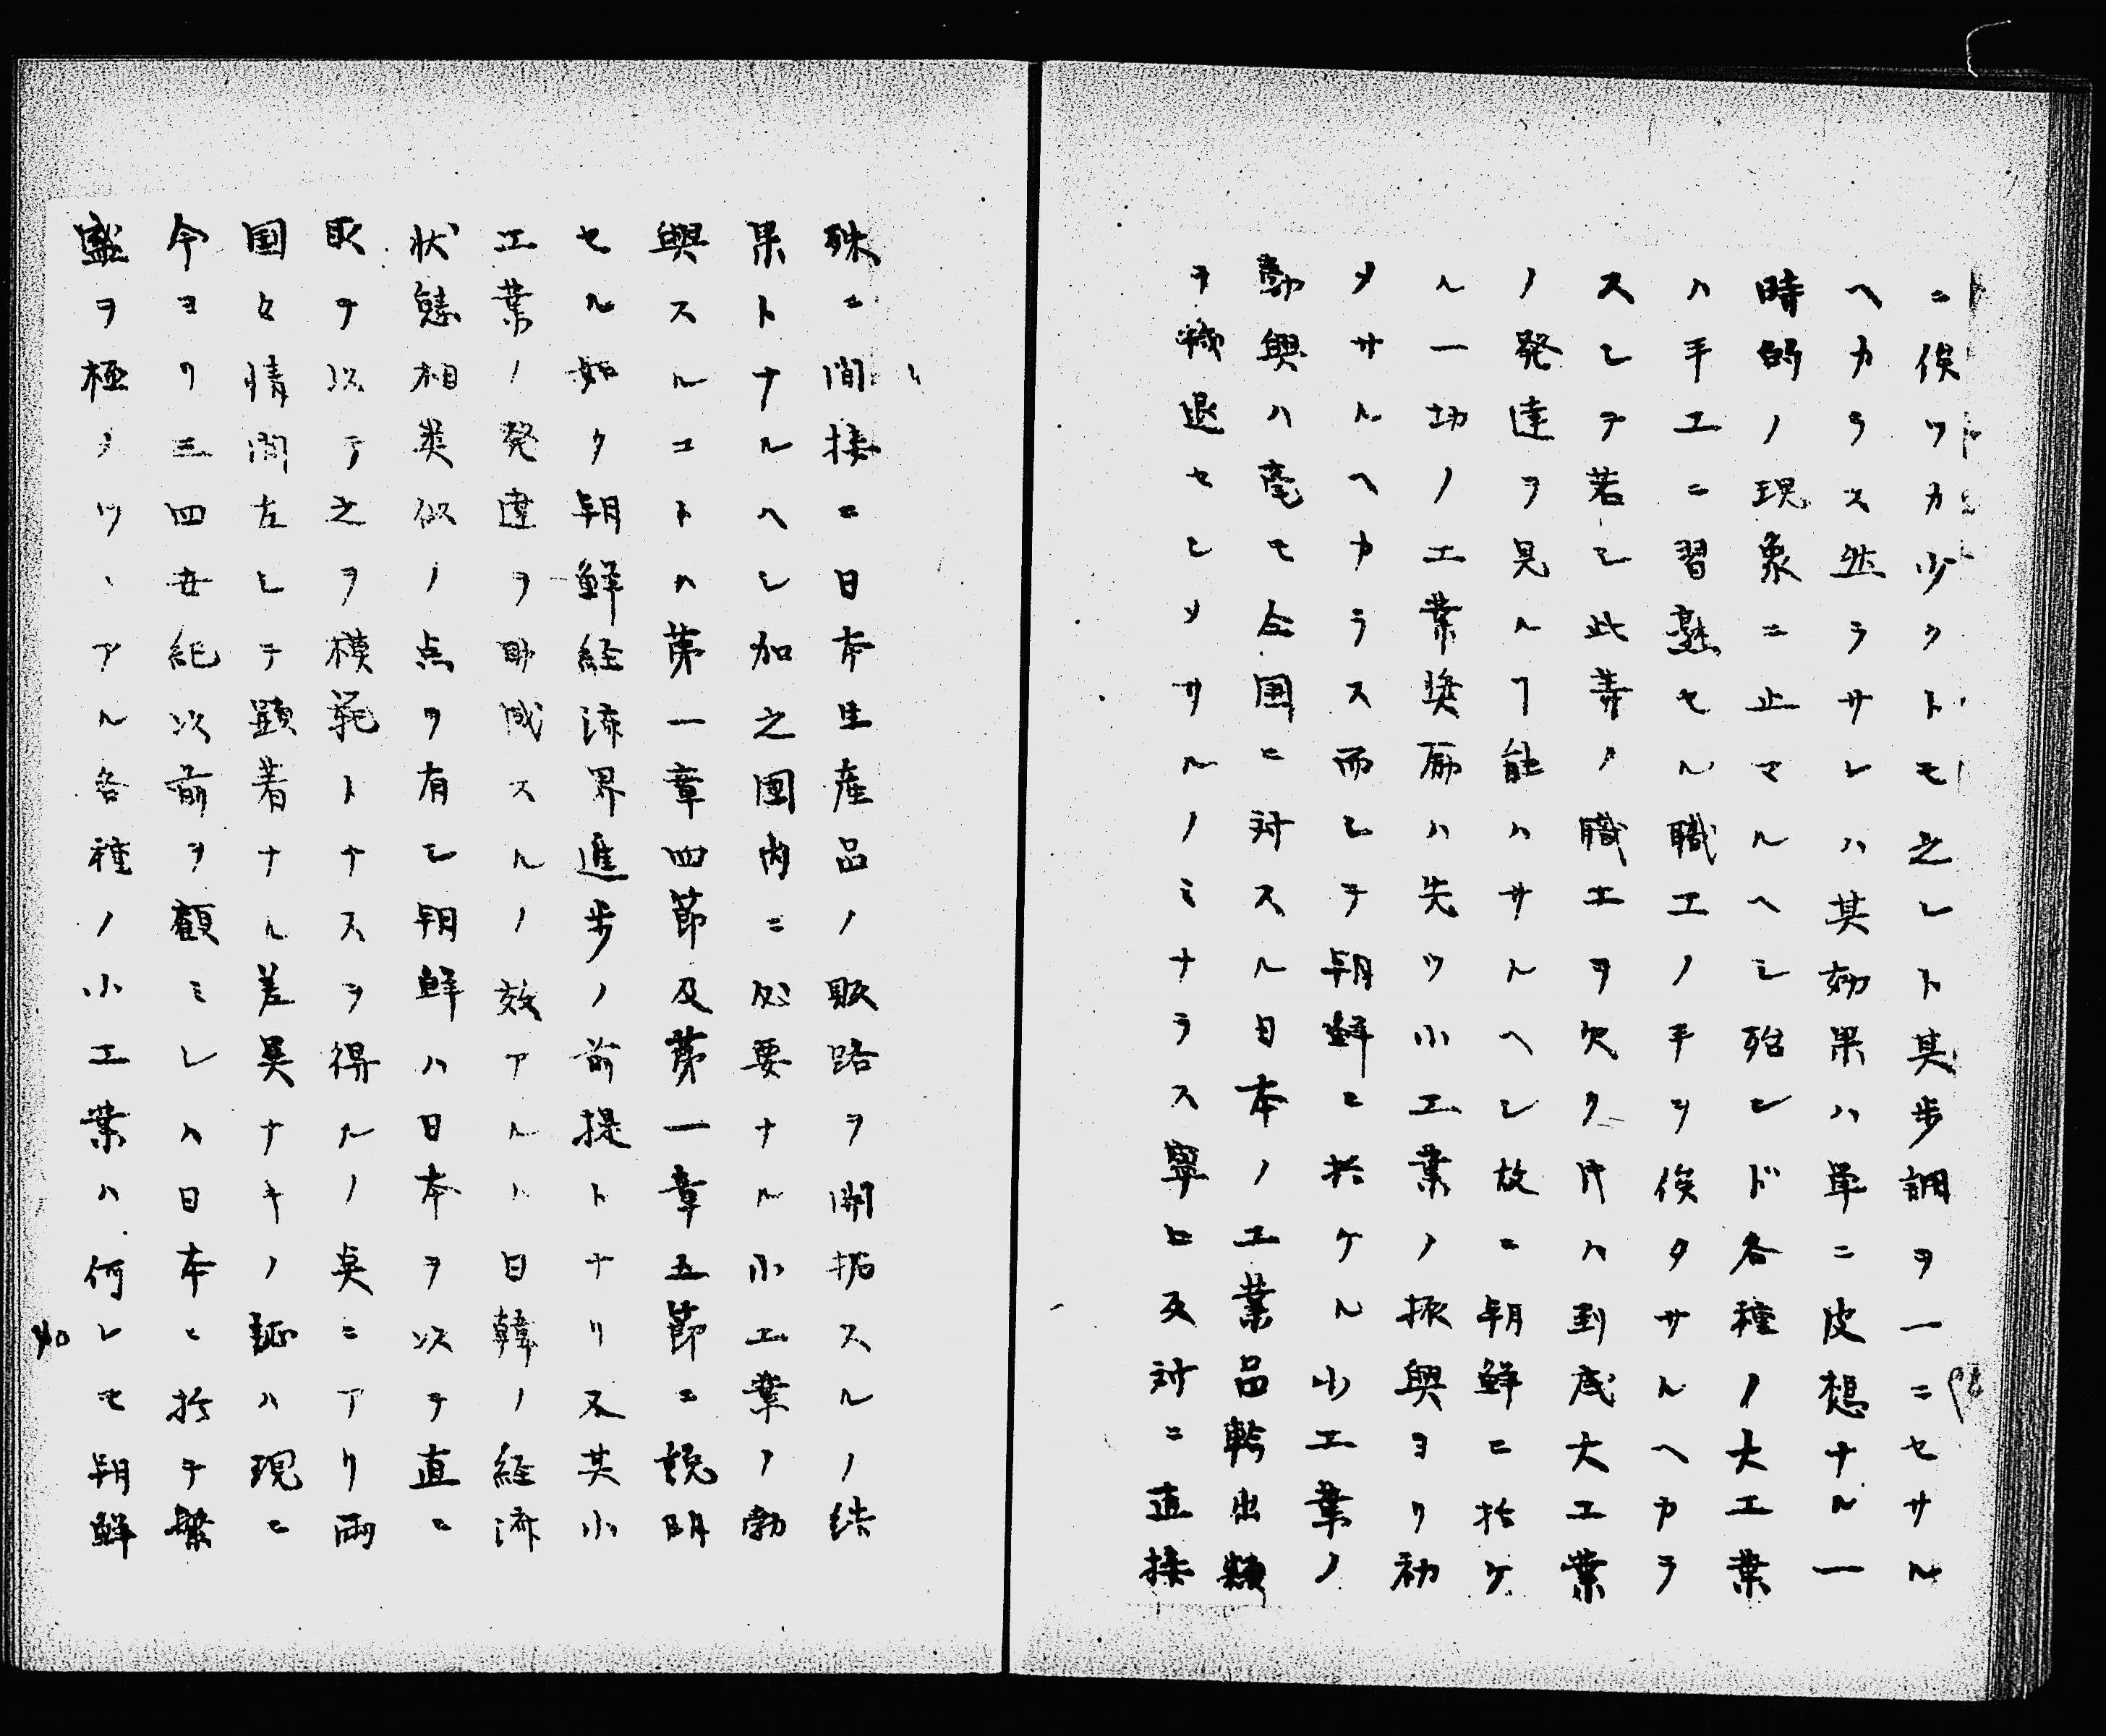 ニ俟ツカ少クトモ之レト其歩調ヲ一ニセサル
ヘカラス然ラサレハ其効果ハ単ニ皮想ナル一
時的ノ現象ニ止マルヘシ殆レド各種ノ大工業
ハ手工ニ習熟セル職工ノ手ヲ俟タサルヘカラ
スシテ若シ此等ノ職工ヲ欠ク片ハ到底大工業
ノ発達ヲ見ルヿ能ハサルヘレ故ニ朝鮮ニ於ケ
ル一切ノ工業奨励ハ先ツ小工業ノ振興ヨリ初
メサルヘカラス而シテ朝鮮ニ於ケル小工業ノ
勃興ハ毫モ全国ニ対スル日本ノ工業品輸出額
ヲ減退セシメサルノミナラス寧ロ反対ニ直接
殊ニ間接ニ日本生産品ノ販路ヲ開拓スルノ結
果トナルヘシ加之国内ニ必要ナル小工業ノ勃
興スルコトハ第一章四節及第一章五節ニ説明
セル如ク朝鮮経済界進歩ノ前提トナリ又其小
工業ノ発達ヲ助成スルノ效アルト日韓ノ経済
状態相类似ノ点ヲ有シ朝鮮ハ日本ヲ次テ直ニ
取テ以テ之ヲ模範トナスヲ得ルノ奌ニアリ両
国々情間左シテ顕着ナル差異ナキノ証ハ現ニ
今ヨリ三四世紀以前ヲ顧ミレハ日本ニ於テ繁
盛ヲ極メツヽアル各種ノ小工業ハ何レモ朝鮮